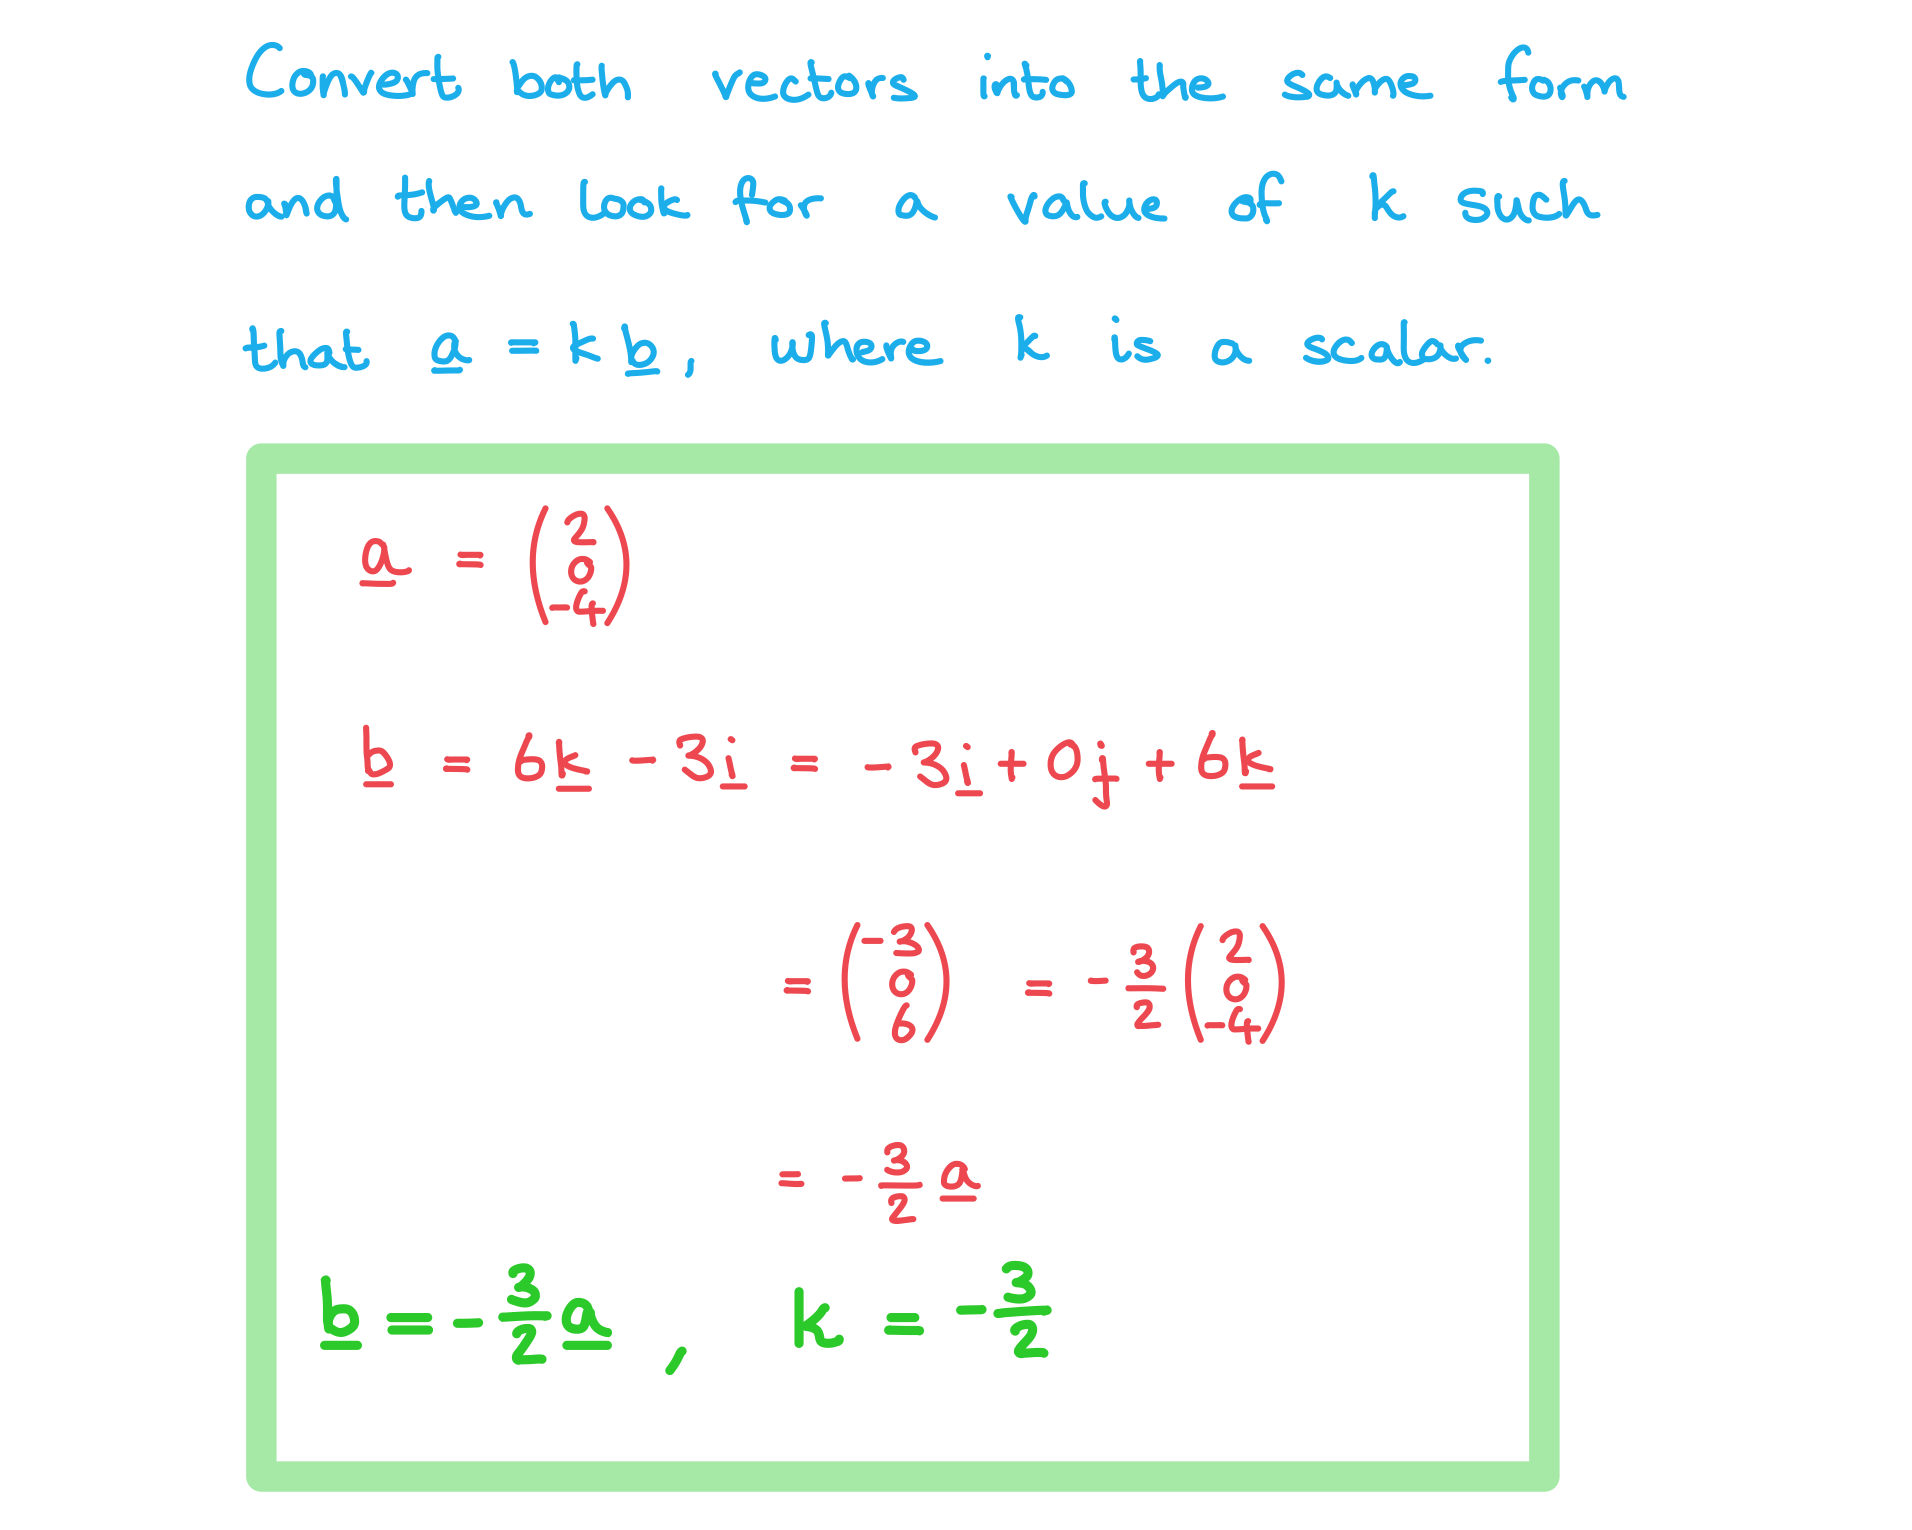 Convert both vectors into the same form
and then look for a value of k such
that a = kb, where k is a scalar.
a = (2 0 -4)
b = 6k - 3i = -3i + 0j + 6k
= (-3 0 6) = -3/2 (2 0 -4)
= -3/2 a
b = -3/2 a , k = -3/2